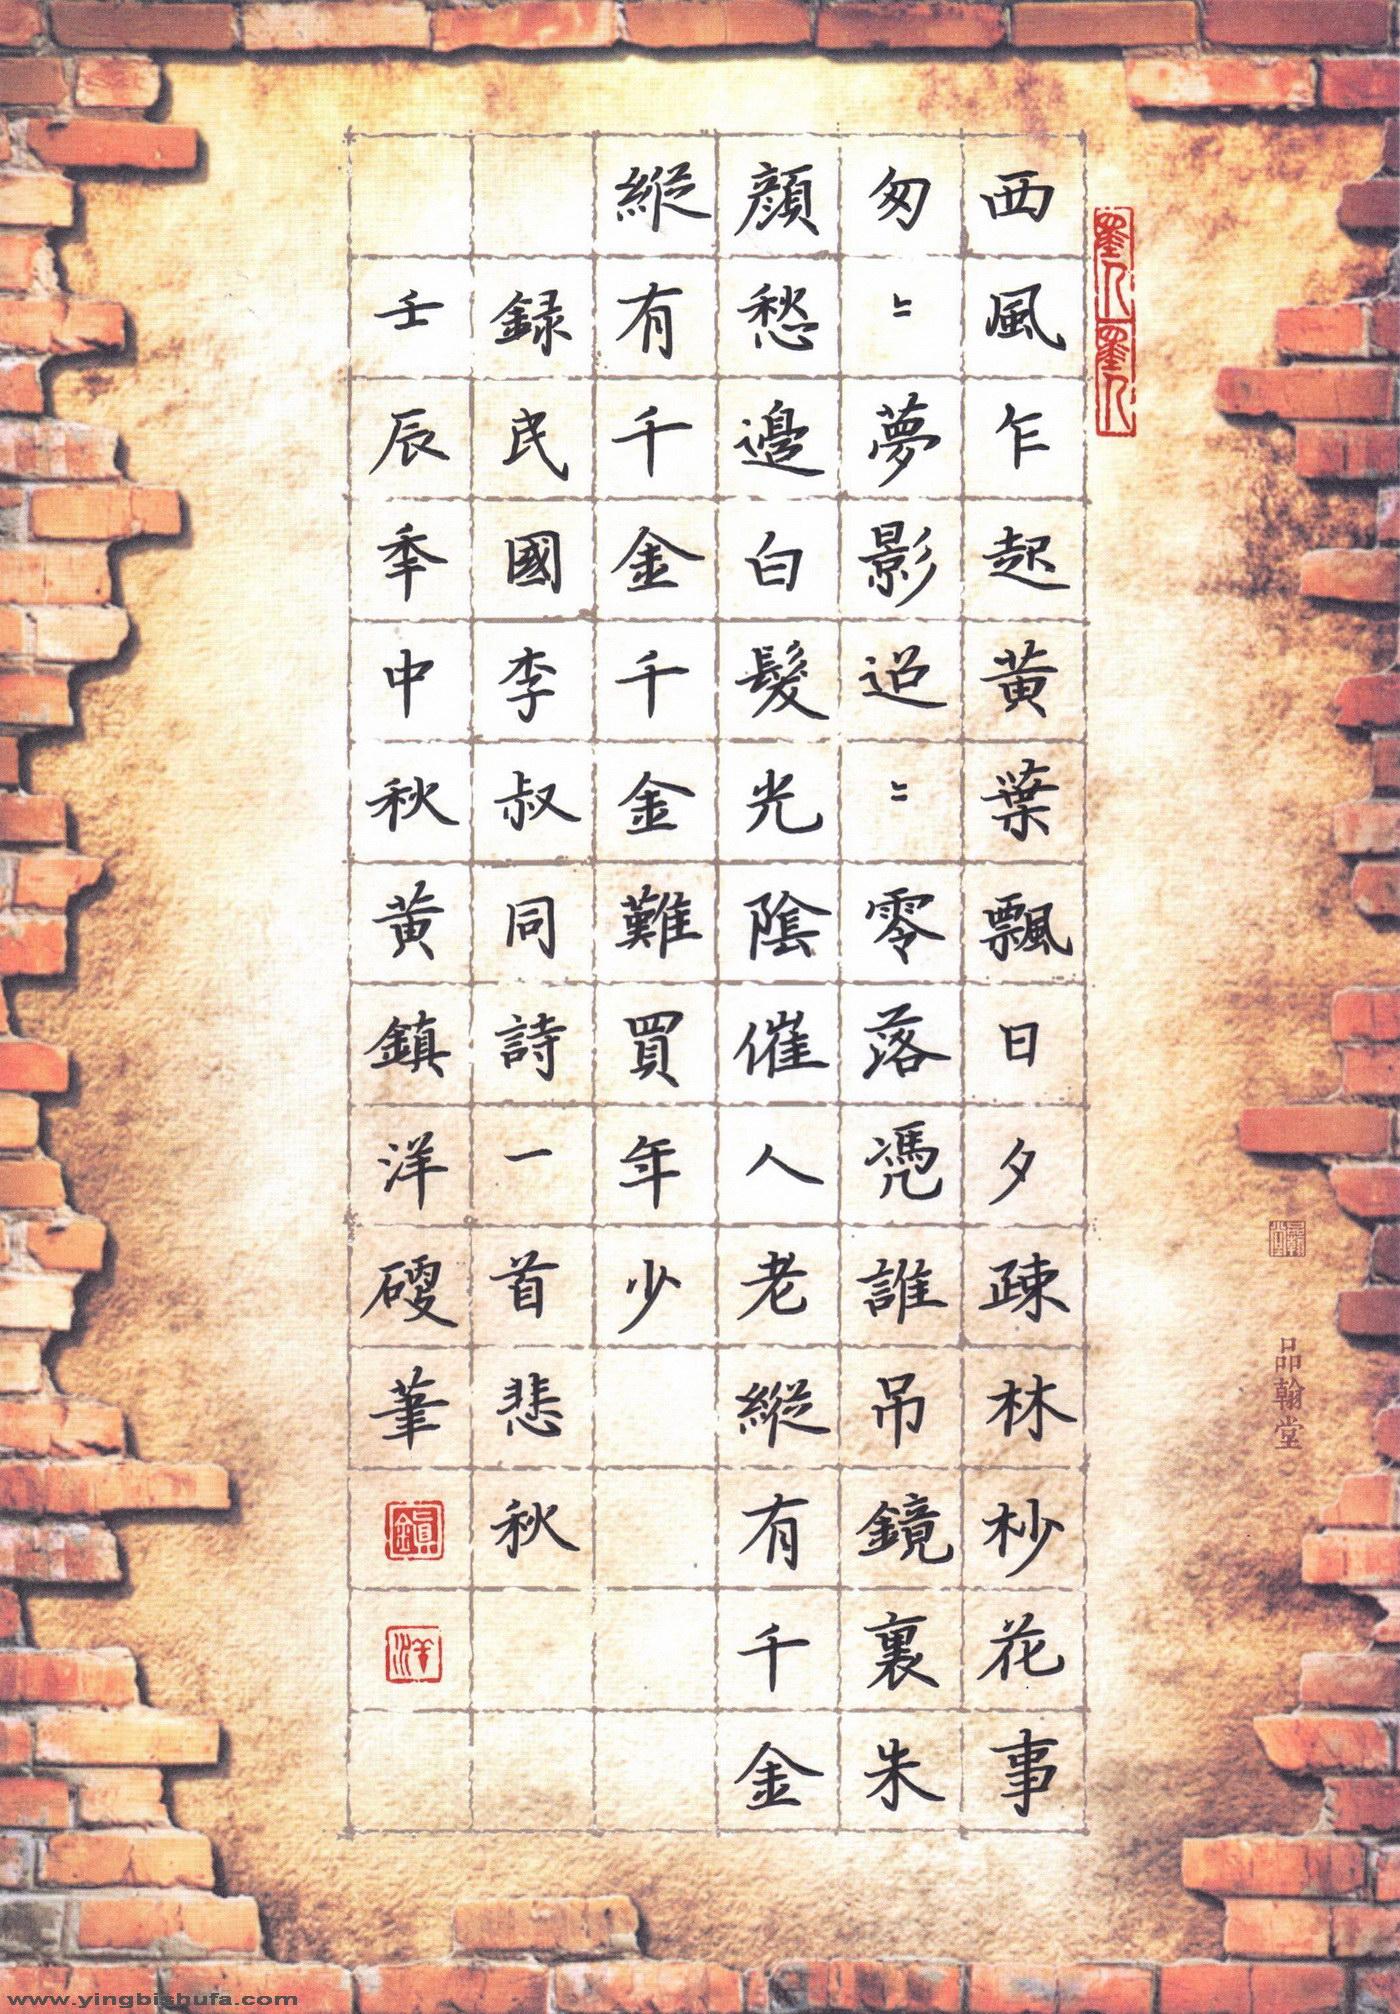 西風乍起黃葉飄日夕疎林杪花事
匆〻夢影迢〻零落凴誰吊鏡裏朱
顔愁邊白髮光陰催人老縱有千金
縱有千金千金難買年少
録民國李叔同詩一首悲秋
壬辰秊中秋黃鎮洋硬筆
品翰堂
www.yingbishufa.com